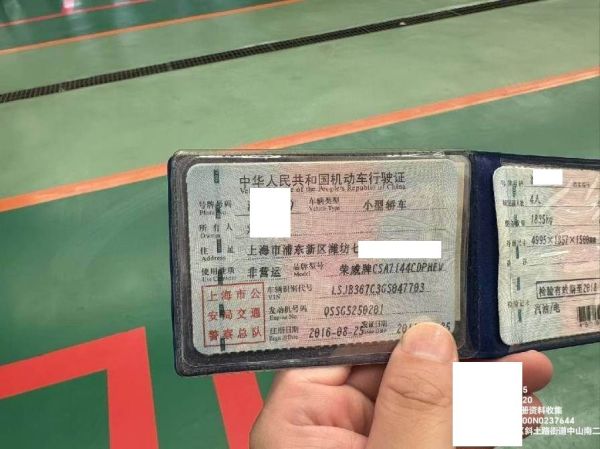 中华人民共和国机动车行驶证
Vehicle License of the People's Republic of China
号牌号码
车辆类型 小型轿车
Vehicle Type
所有人
Owner
住址 上海市浦东新区潍坊七
Address
使用性质 非营运 品牌型号 荣威牌CSA7144CDPHEV
上海市公
安局交通
警察总队
车辆识别代号 LSJB367C3GS047703
VIN
发动机号码 QSSG5250201
Engine No.
注册日期 2016-08-25 发证日期
号牌号码
4人
1895kg
4595×1857×1500mm
检验有效期至2018
汽油/电
5
20
册资料收集
00N0237644
区斜土路街道中山南二